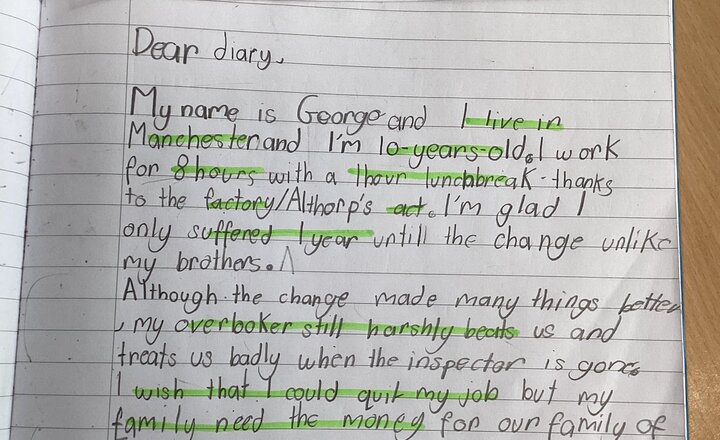 Dear diary,
My name is George and I live in
Manchester and I'm 10-years-old. I work
for 8 hours with a 1hour lunchbreak - thanks
to the factory/Althorp's act. I'm glad I
only suffered 1 year untill the change unlike
my brothers.
Although the change made many things better
, my overboker still harshly beats us and
treats us badly when the inspector is gone.
I wish that I could quit my job but my
family need the money for our family of